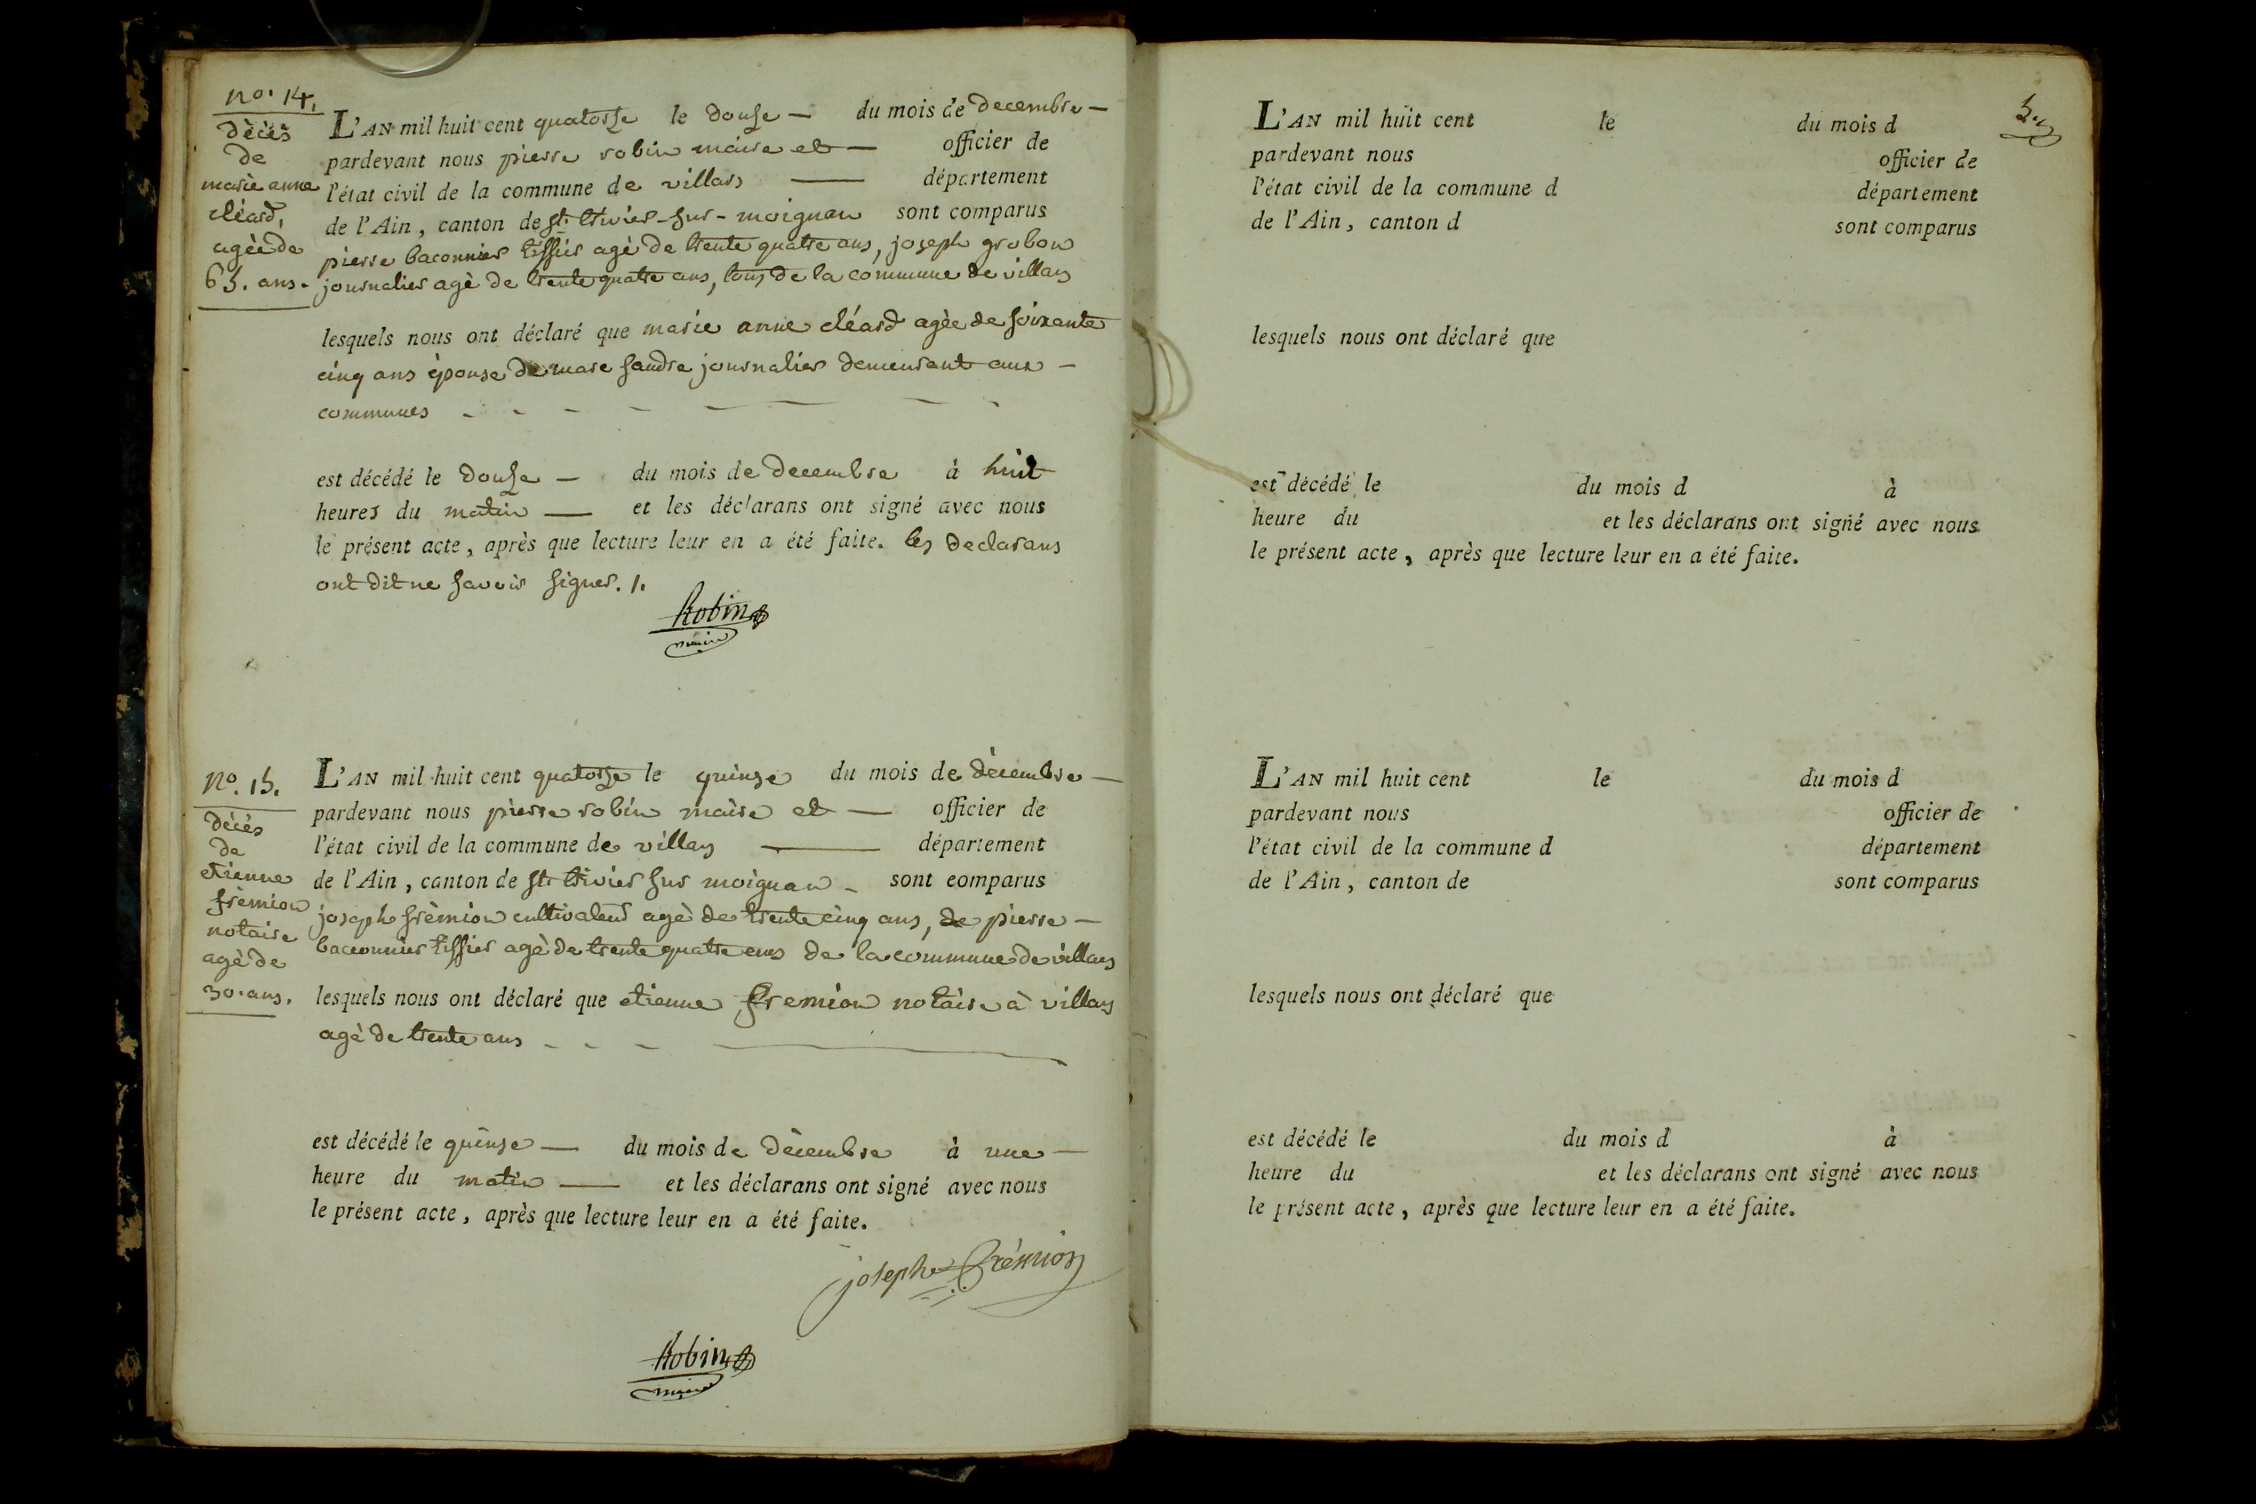 no. 14.
décès
de
marie anne
cléard,
agèe de
65. ans.
L'AN mil huit cent quatorze le douze — du mois de decembre —
pardevant nous pierre robin maire et — officier de
l'état civil de la commune de villars — département
de l'Ain, canton de st. trivier-sur-moignan sont comparus
pierre baconnier tissier agè de trente quatre ans, joseph grobon
journalier agè de trente quatre ans, tous de la commune de villars
lesquels nous ont déclaré que marie anne cléard agèe de soixante
cinq ans èpouse de marc sandre journalier demeurant aux —
communes
est décédé le douze — du mois de decembre à huit
heures du matin — et les déclarans ont signé avec nous
le présent acte, après que lecture leur en a été faite. les declarans
ont dit ne savoir signer. /.
Robin
maire
no. 15.
décès
de
etienne
frèmion
notaire
agè de
30. ans.
L'AN mil huit cent quatorze le quinze du mois de dècembre —
pardevant nous pierre robin maire et — officier de
l'état civil de la commune de villars — département
de l'Ain, canton de st. trivier sur moignan - sont comparus
joseph frèmion cultivateur agè de trente cinq ans, de pierre —
baconnier tissier agè de trente quatre ans de la commune de villars
lesquels nous ont déclaré que etienne fremion notaire à villars
agè de trente ans
est décédé le quinze — du mois de dècembre à une —
heure du matin — et les déclarans ont signé avec nous
le présent acte, après que lecture leur en a été faite.
joseph Frémion
Robin
maire
5.
L'AN mil huit cent le du mois d
pardevant nous officier de
l'état civil de la commune d département
de l'Ain, canton d sont comparus
lesquels nous ont déclaré que
est décédé le du mois d à
heure du et les déclarans ont signé avec nous
le présent acte, après que lecture leur en a été faite.
L'AN mil huit cent le du mois d
pardevant nous officier de
l'état civil de la commune d département
de l'Ain, canton de sont comparus
lesquels nous ont déclaré que
est décédé le du mois d à
heure du et les déclarans ont signé avec nous
le présent acte, après que lecture leur en a été faite.